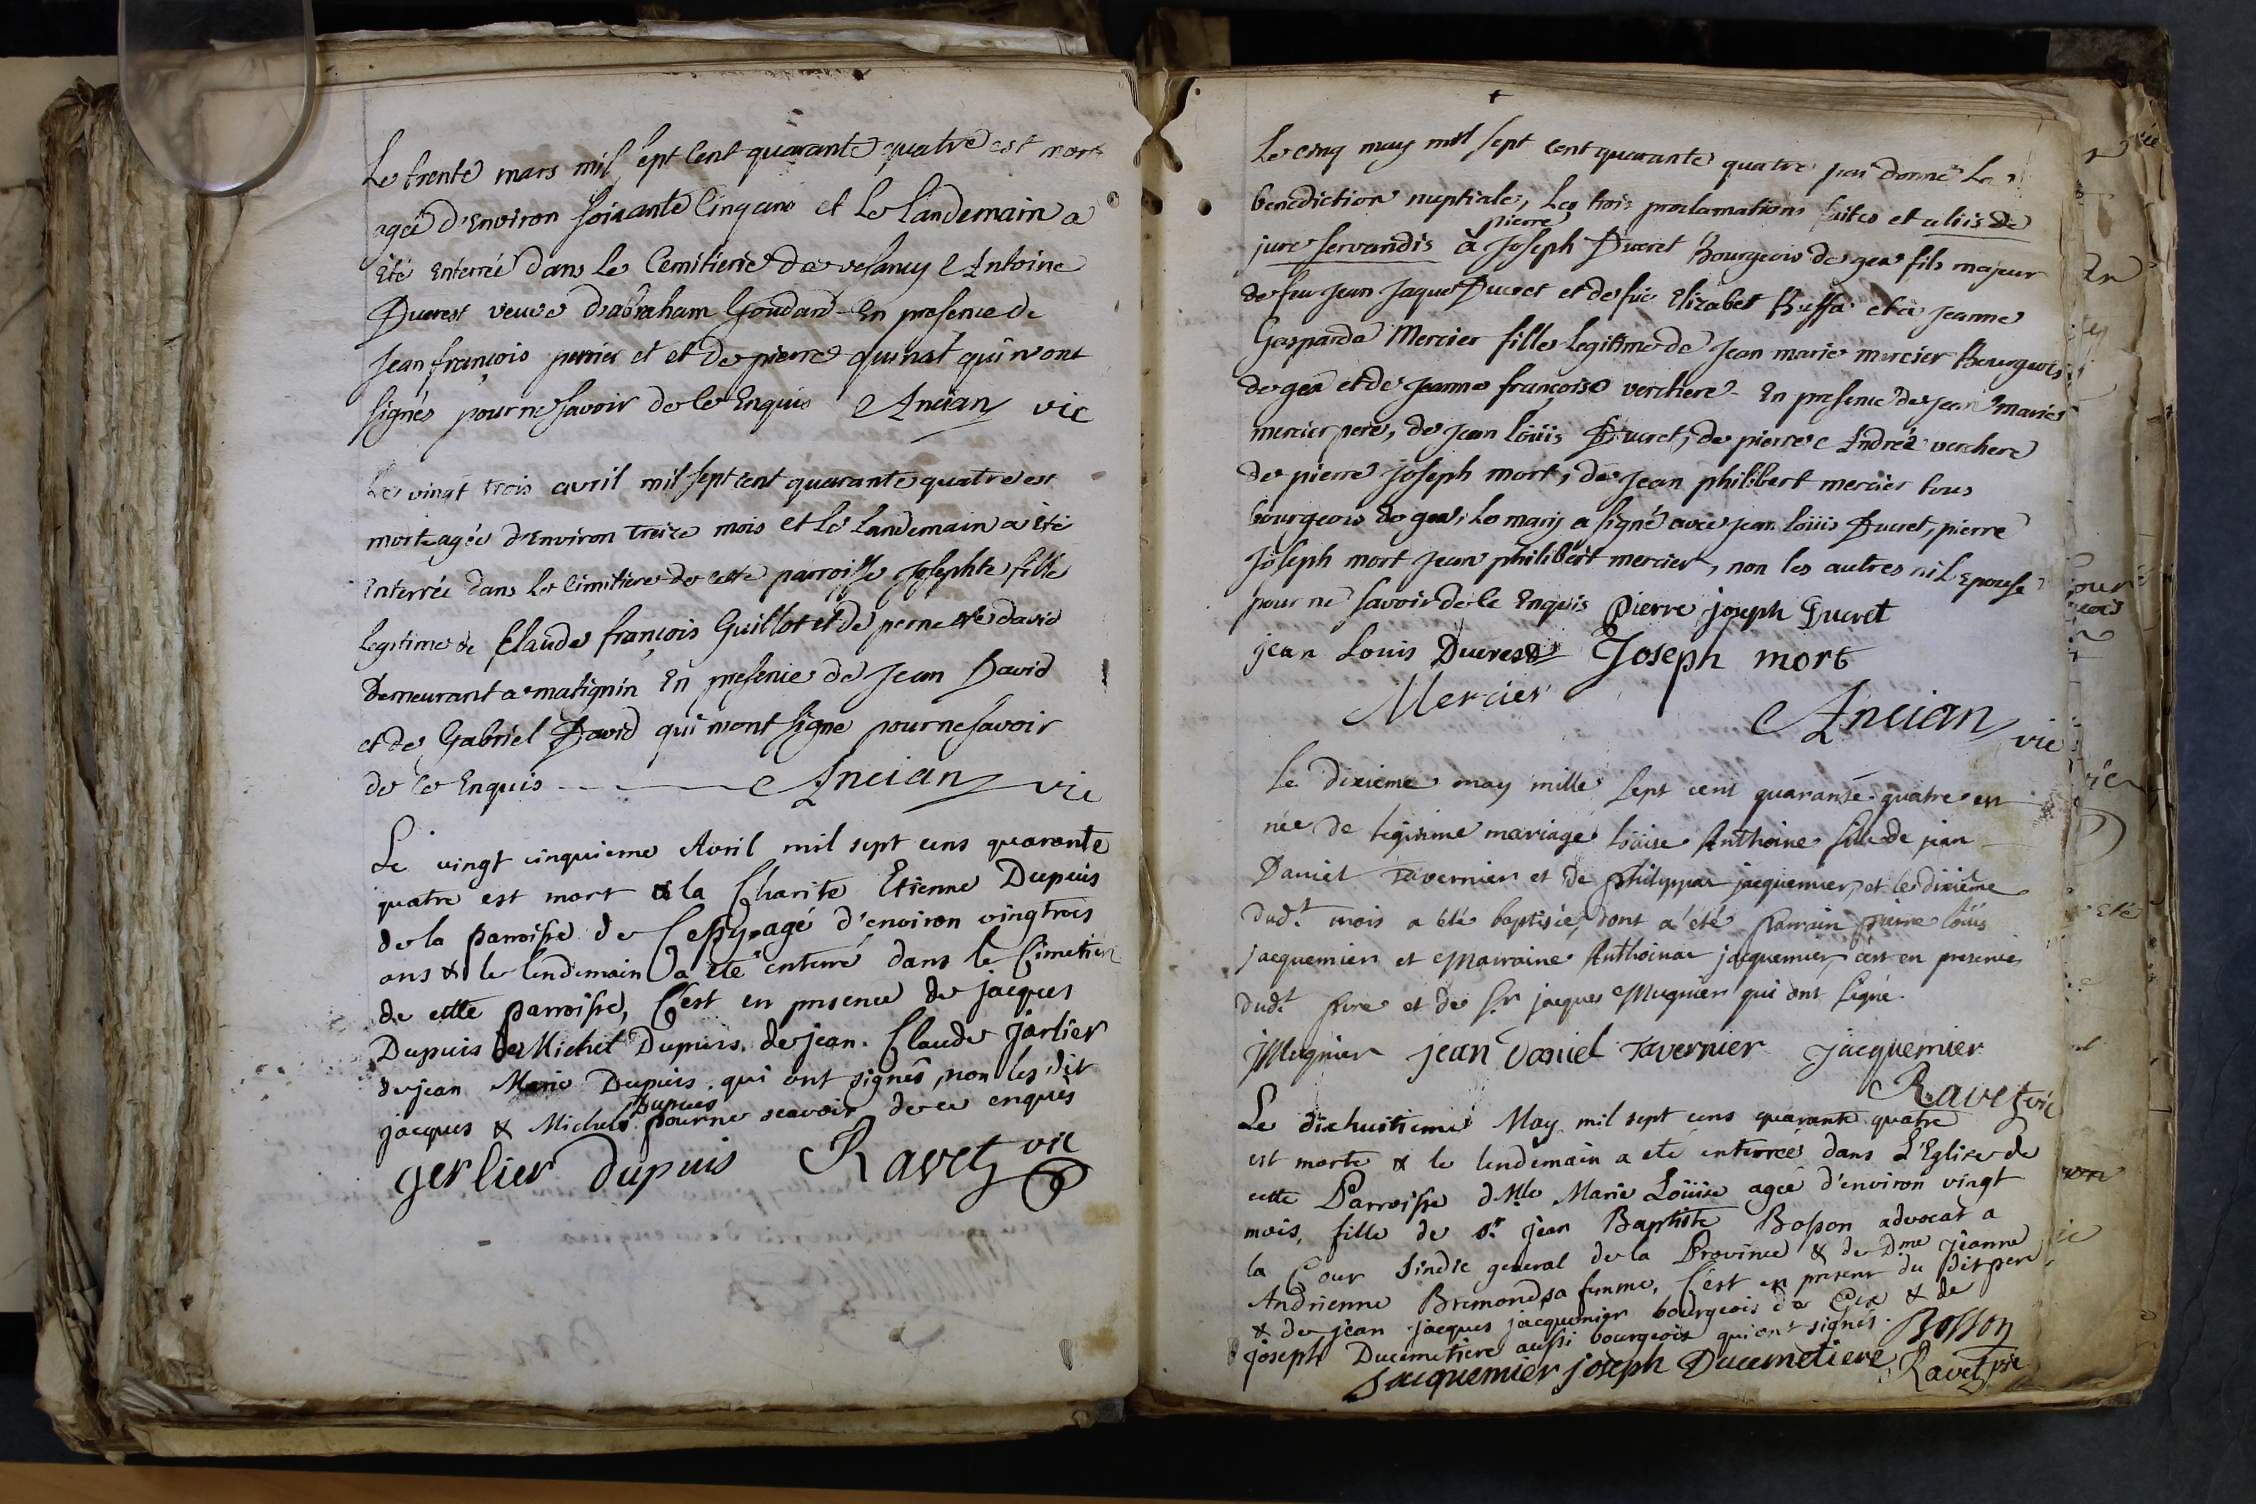 Le trente mars mil sept Cent quarante quatre est mort
agée d'Environ soixante Cinq ans et Le Landemain a
Eté Enterrée dans Le Cemitiere de vesancy Antoine
Ducrest veuve d'abraham Goudard En presence de
Jean françois perrier et et de pierre quinat qui n'ont
signés pour ne savoir de ce Enquis Ancian vic
Le vingt trois avril mil sept cent quarante quatre est
morte agée d'Environ treize mois et Le Landemain a été
Enterrée dans Le Cimitiere de cette parroisse Josephte fille
legitime de Claude françois Guillot et de pernette david
Demeurant a matignin En presence de Jean David
et de Gabriel David qui n'ont signe pour ne savoir
de ce Enquis Ancian vic
Le vingt cinquieme Avril mil sept cens quarante
quatre est mort a la Charité Etienne Dupuis
de la parroisse de Cessy agé d'environ vingtrois
ans & le lendemain a eté enterré dans le Cimetier
de cette parroisse, C'est en presence de jacques
Dupuis de Michel Dupuis, de jean Claude jarlier
de jean Marie Dupuis qui ont signés, non les dit
jacques & Michel Dupuis pour ne scavoir de ce enquis
gerlier dupuis Ravet vic
Le cinq may mil sept cent quarante quatre jai donné La
benediction nuptiale, Les trois proclamations faites et aliis de
jure servandis à pierre Joseph Ducret Bourgeois de gex fils majeur
de feu Jean Jaque Ducret et de fue Elizabet Buffa et a Jeanne
Gasparde Mercier fille Legitime de Jean marie mercier Bourgeois
de gex et de Jeanne françoise verchere En presence de Jean marie
mercier pere, de Jean Loüis Ducret, de pierre André verchere
de pierre Joseph mort, de Jean philibert mercier tous
bourgeois de gex, Le mary a signé avec Jean Loüis Ducret, pierre
Joseph mort Jean philibert mercier, non les autres ni L'Epouse
pour ne savoir de ce Enquis pierre joseph Ducret
jean Louis Ducrest Joseph mort
Mercier
Ancian vic
Le dixieme may mille sept cent quarante quatre est
née de legitime mariage Loüise Anthoine fille de jean
Daniel Tavernier et de philippaz jacquemier, et le dixième
dud.t mois a été baptisée, dont a été parrain pierre loüis
jacquemier et Marraine Anthoinaz jacquemier, c'est en presence
dud.t pere et de S.r jacques Mugnier qui ont signé.
JMugnier jean Daniel Tavernier jacquemier
Ravet vic
Le dixhuitieme May mil sept cens quarante quatre
est morte & le lendemain a eté enterrée dans L'Eglise de
cette Parroisse d.lle Marie Loüise agée d'environ vingt
mois, fille de s.r jean Baptiste Bosson advocat a
la Cour Sindic general de la Province & de D.me jeanne
Andrienne Brimond sa femme, C'est en presence du dit pere,
& de jean jacques jacquemier bourgeois de Gex & de
joseph Ducimetiere aussi bourgeois qui ont signés. Bosson
Jacquemier joseph Ducimetiere Ravet vic